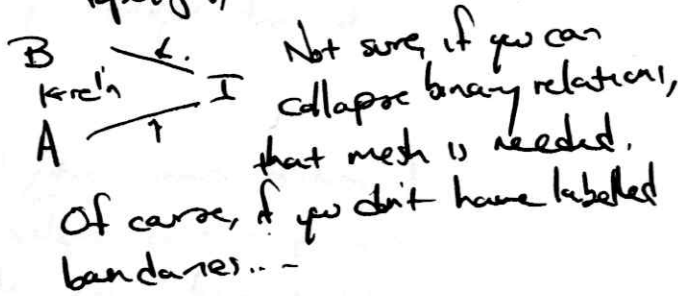 B
A
I
Not sure, if you can
collapse binary relations,
that mesh is needed.
Of course, if you don't have labelled
boundaries...